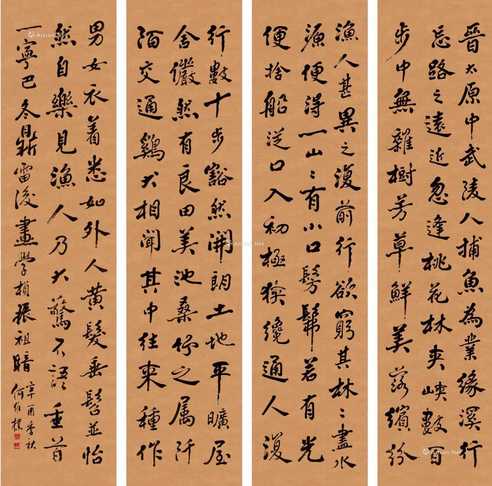 晋太原中武陵人捕魚為業緣溪行
忘路之遠近忽逢桃花林夾峽數百
步中無雜樹芳草鮮美落繽紛
漁人甚異之復前行欲窮其林〻盡水
源便得一山〻有小口髣髴若有光
便捨船從口入初極狹纔通人復
行數十步豁然開朗土地平曠屋
舍儼然有良田美池桑竹之屬阡
陌交通鷄犬相聞其中往來種作
男女衣着悉如外人黄髮垂髫並怡
然自樂見漁人乃大驚不語
辛酉季秋
何維樸